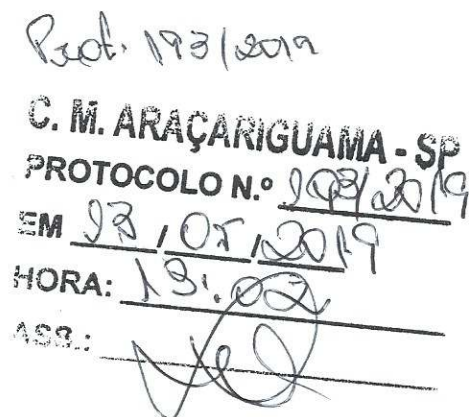 Prot. 193/2019
C. M. ARAÇARIGUAMA - SP
PROTOCOLO N.º 193/2019
EM 13/05/2019
HORA: 13:02
ASS.: